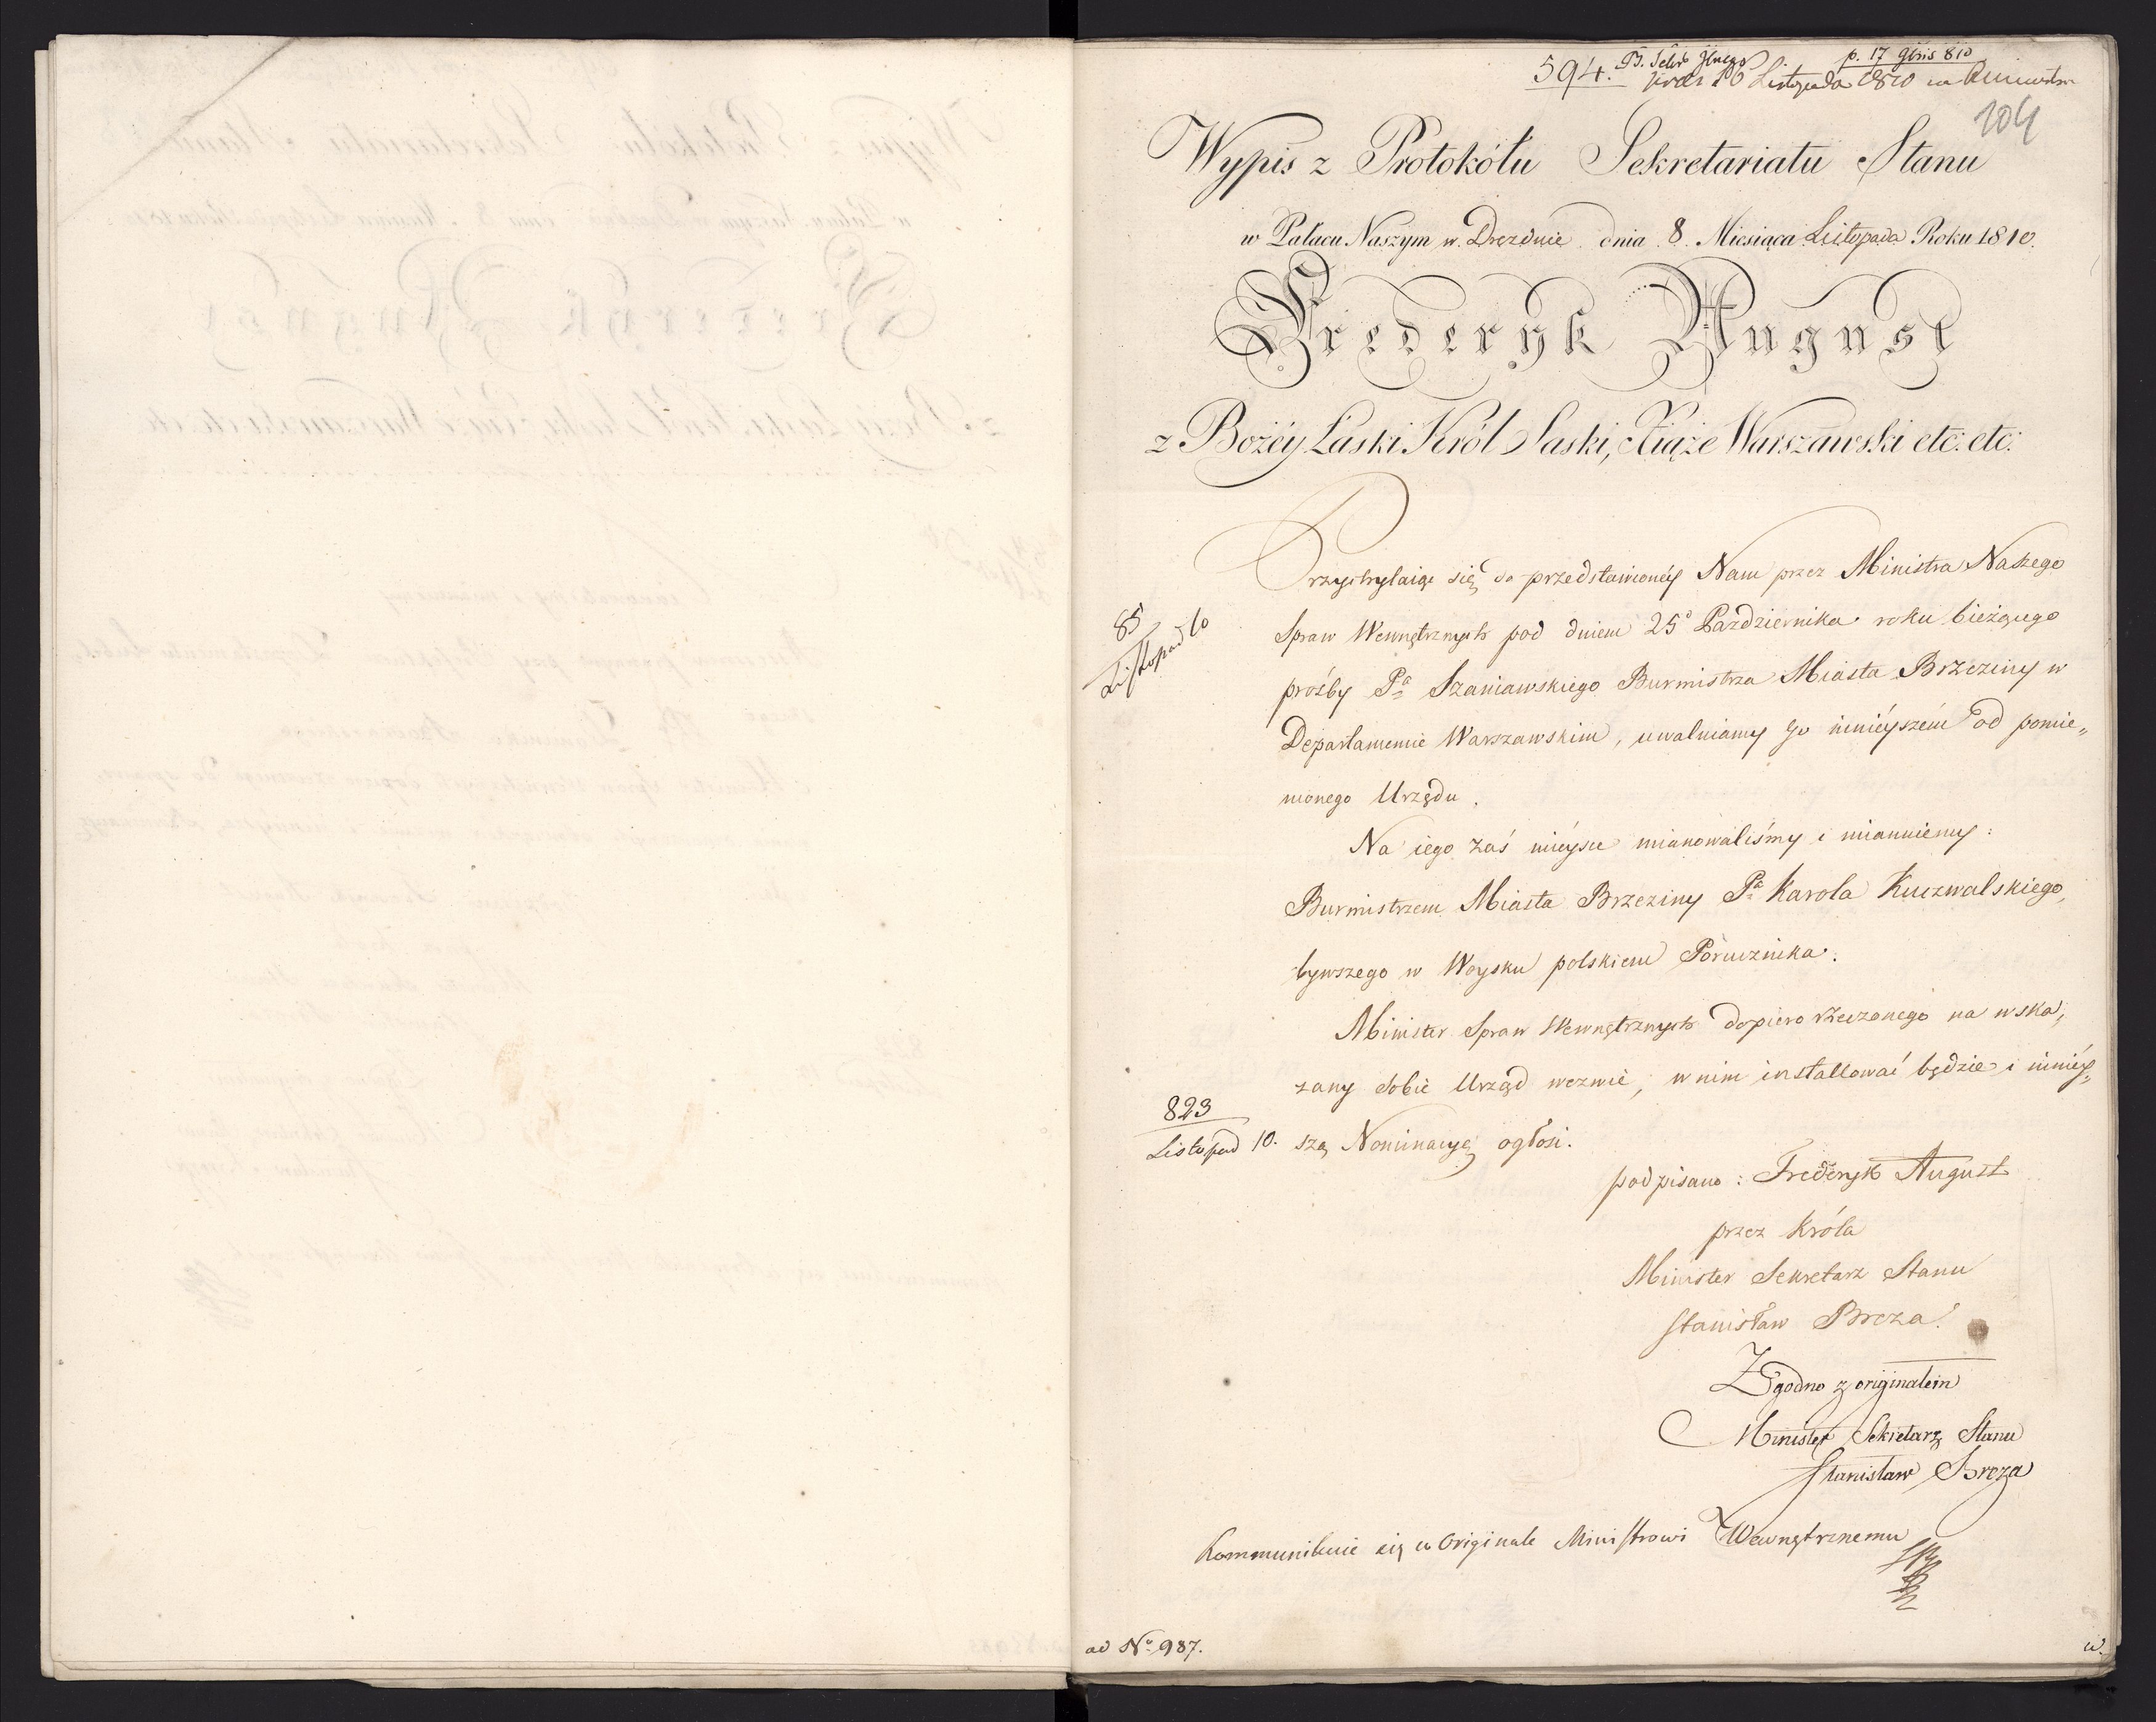 594. p. 17 9bris 810
10 Listopada 1810
104
Wypis z Protokółu Sekretariatu Stanu
w Pałacu Naszym w Dreznie dnia 8. Miesiąca Listopada Roku 1810.
Frederyk August
z Bożéy Łaski Król Saski, Xiąże Warszawski etc: etc:
Przychylaiąc się do przedstawionéy Nam przez Ministra Naszego
85
Listopad 10
Spraw Wewnętrznych pod dniem 25° Października roku bieżącego
prośby Pa Szaniawskiego Burmistrza Miasta Brzeziny w
Departamencie Warszawskim, uwalniamy go ninieyszém od pomie„
nionego Urzędu.
Na iego zaś mieysce mianowaliśmy i mianuiemy:
Burmistrzem Miasta Brzeziny Pa Karola Kuczwalskiego,
bywszego w Woysku polskiem Porucznika.
Minister Spraw Wewnętrznych dopiero rzeczonego na wska„
zany sobie Urząd wezwie, w nim installować będzie i niniey„
823
Listopad 10.
szą Nominacyą ogłosi.
podpisano: Frederyk August
przez Króla
Minister Sekretarz Stanu
Stanisław Breza.
Zgodno z originałem
Minister Sekretarz Stanu
Stanisław Breza
Kommunikuie się w Originale Ministrowi Wewnętrznemu
ad No 987.
w.